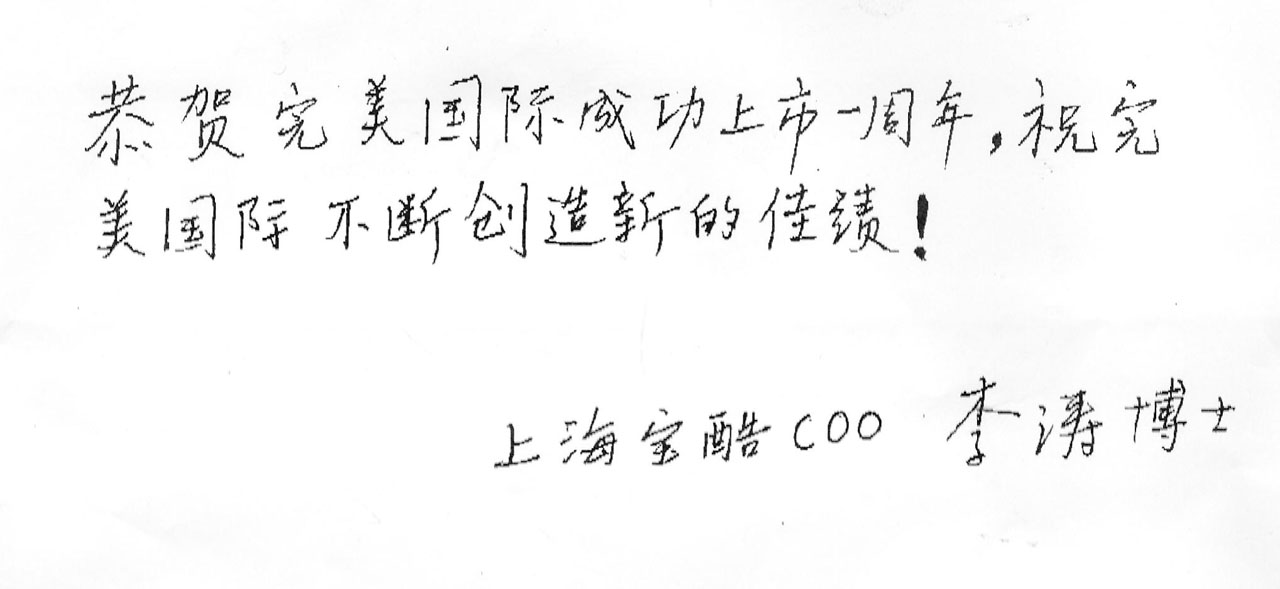 恭贺完美国际成功上市一周年,祝完
美国际不断创造新的佳绩!
上海宝酷COO 李涛博士